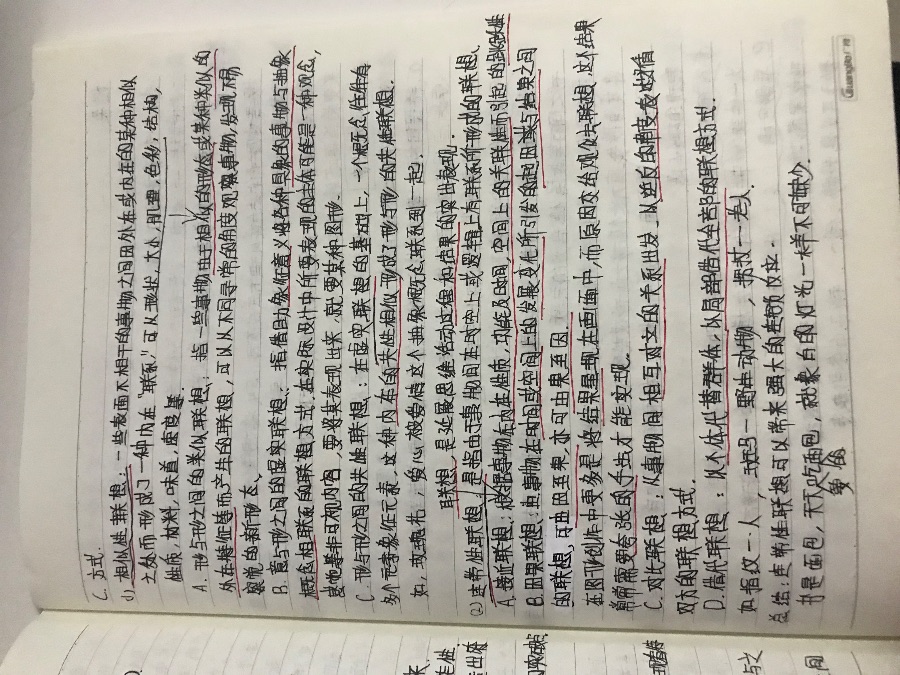 方式.
C.
(1) 相似性联想：一些表面不相干的事物之间因外在或内在的某种相似
之处而形成了一种内在"联系." 可从形状，大小，肌理，色彩，结构，
性质，材料，味道，速度等.
A. 形与形之间的类似联想：指一些事物由于相似的形态或某种类似的
外在特征等而产生的联想，可以从不同寻常的角度观察事物，发现不易
察觉的新形态.
B. 意与形之间的虚实联想：指借助象征意义将各种具象的事物与抽象
概念相联系的联想方式，在实际设计中所要表现的主体可能是一种观念，
或他是非可视内容，要将其表现出来，就要某种图形.
C 形与形之间的共性联想：在虚实联想的基础上，一个概念往往有
多个元素象征元素，这种内在的共性相似形成了形与形的共性联想.
如，玫瑰花，爱心被爱情这个抽象概念联系到一起.
联想，是延展思维活动过程和结果的突出表现.
(2) 连带性联想，是指由于事物间在时空上或逻辑上有联系所形成的联想.
A. 接近联想：根据事物在内在性质，功能及时间，空间上的关联性而引起的
B. 因果联想：由事物在时间或空间上的发展变化所引发的起因或与结果之间
的联想，可由因至果，亦可由果至因.
在图形创作中更多是将结果呈现在画面中，而原因交给观众去联想，这个结果
常常需要夸张的手法才能实现.
C. 对比联想：从事物间相互对立的关系出发，以逆反的
双方的联想方式.
D. 借代联想：以个体代替群体，以局部借代全部的联想方式.
如指纹一人， 一野生动物，拐杖一老人.
总结：连带性联想可以带来强大的连锁反应.
我是面包，天天吃面包，就象白的灯光一样不可缺少
Guangbo